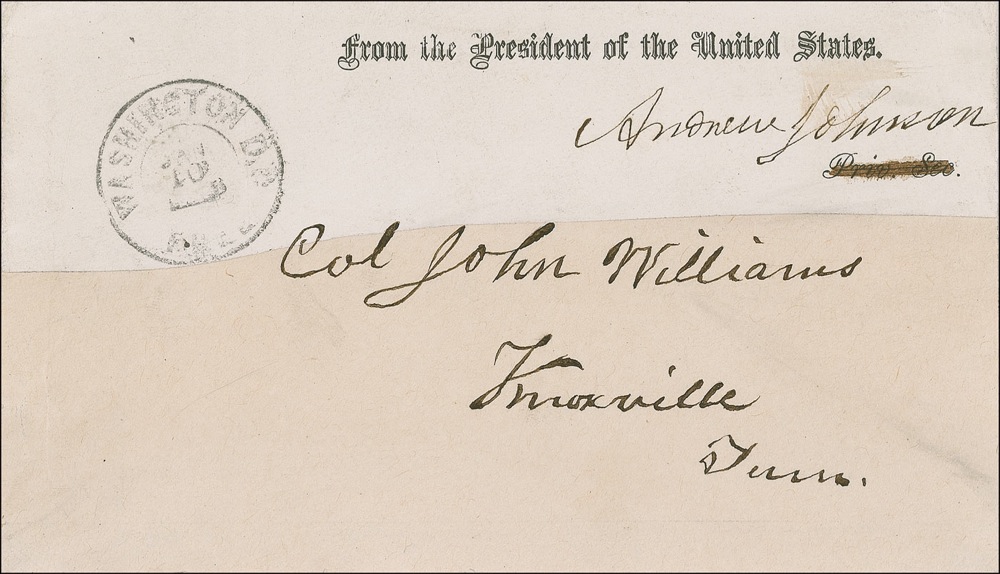 From the President of the United States.
Andrew Johnson
Priv. Sec.
WASHINGTON D.C.
JAN
10
FREE
Col John Williams
Knoxville
Tenn.